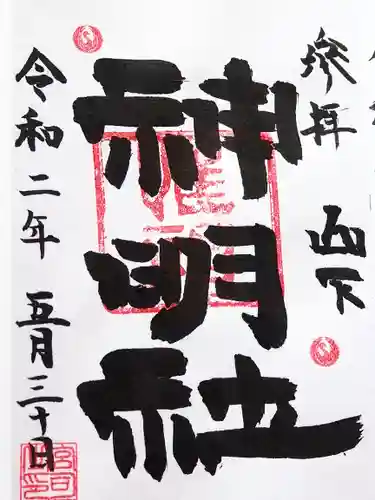 参拝 山下
神明社
令和二年 五月三十日